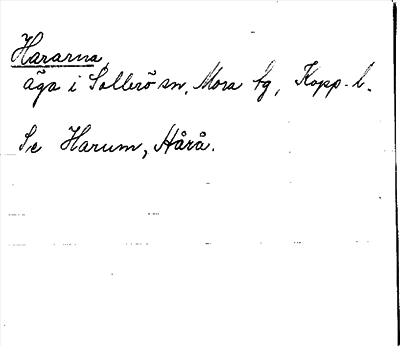 Hararna,
äga i Sollerö sn, Mora tg, Kopp. l.
Se Harum, Hårå.